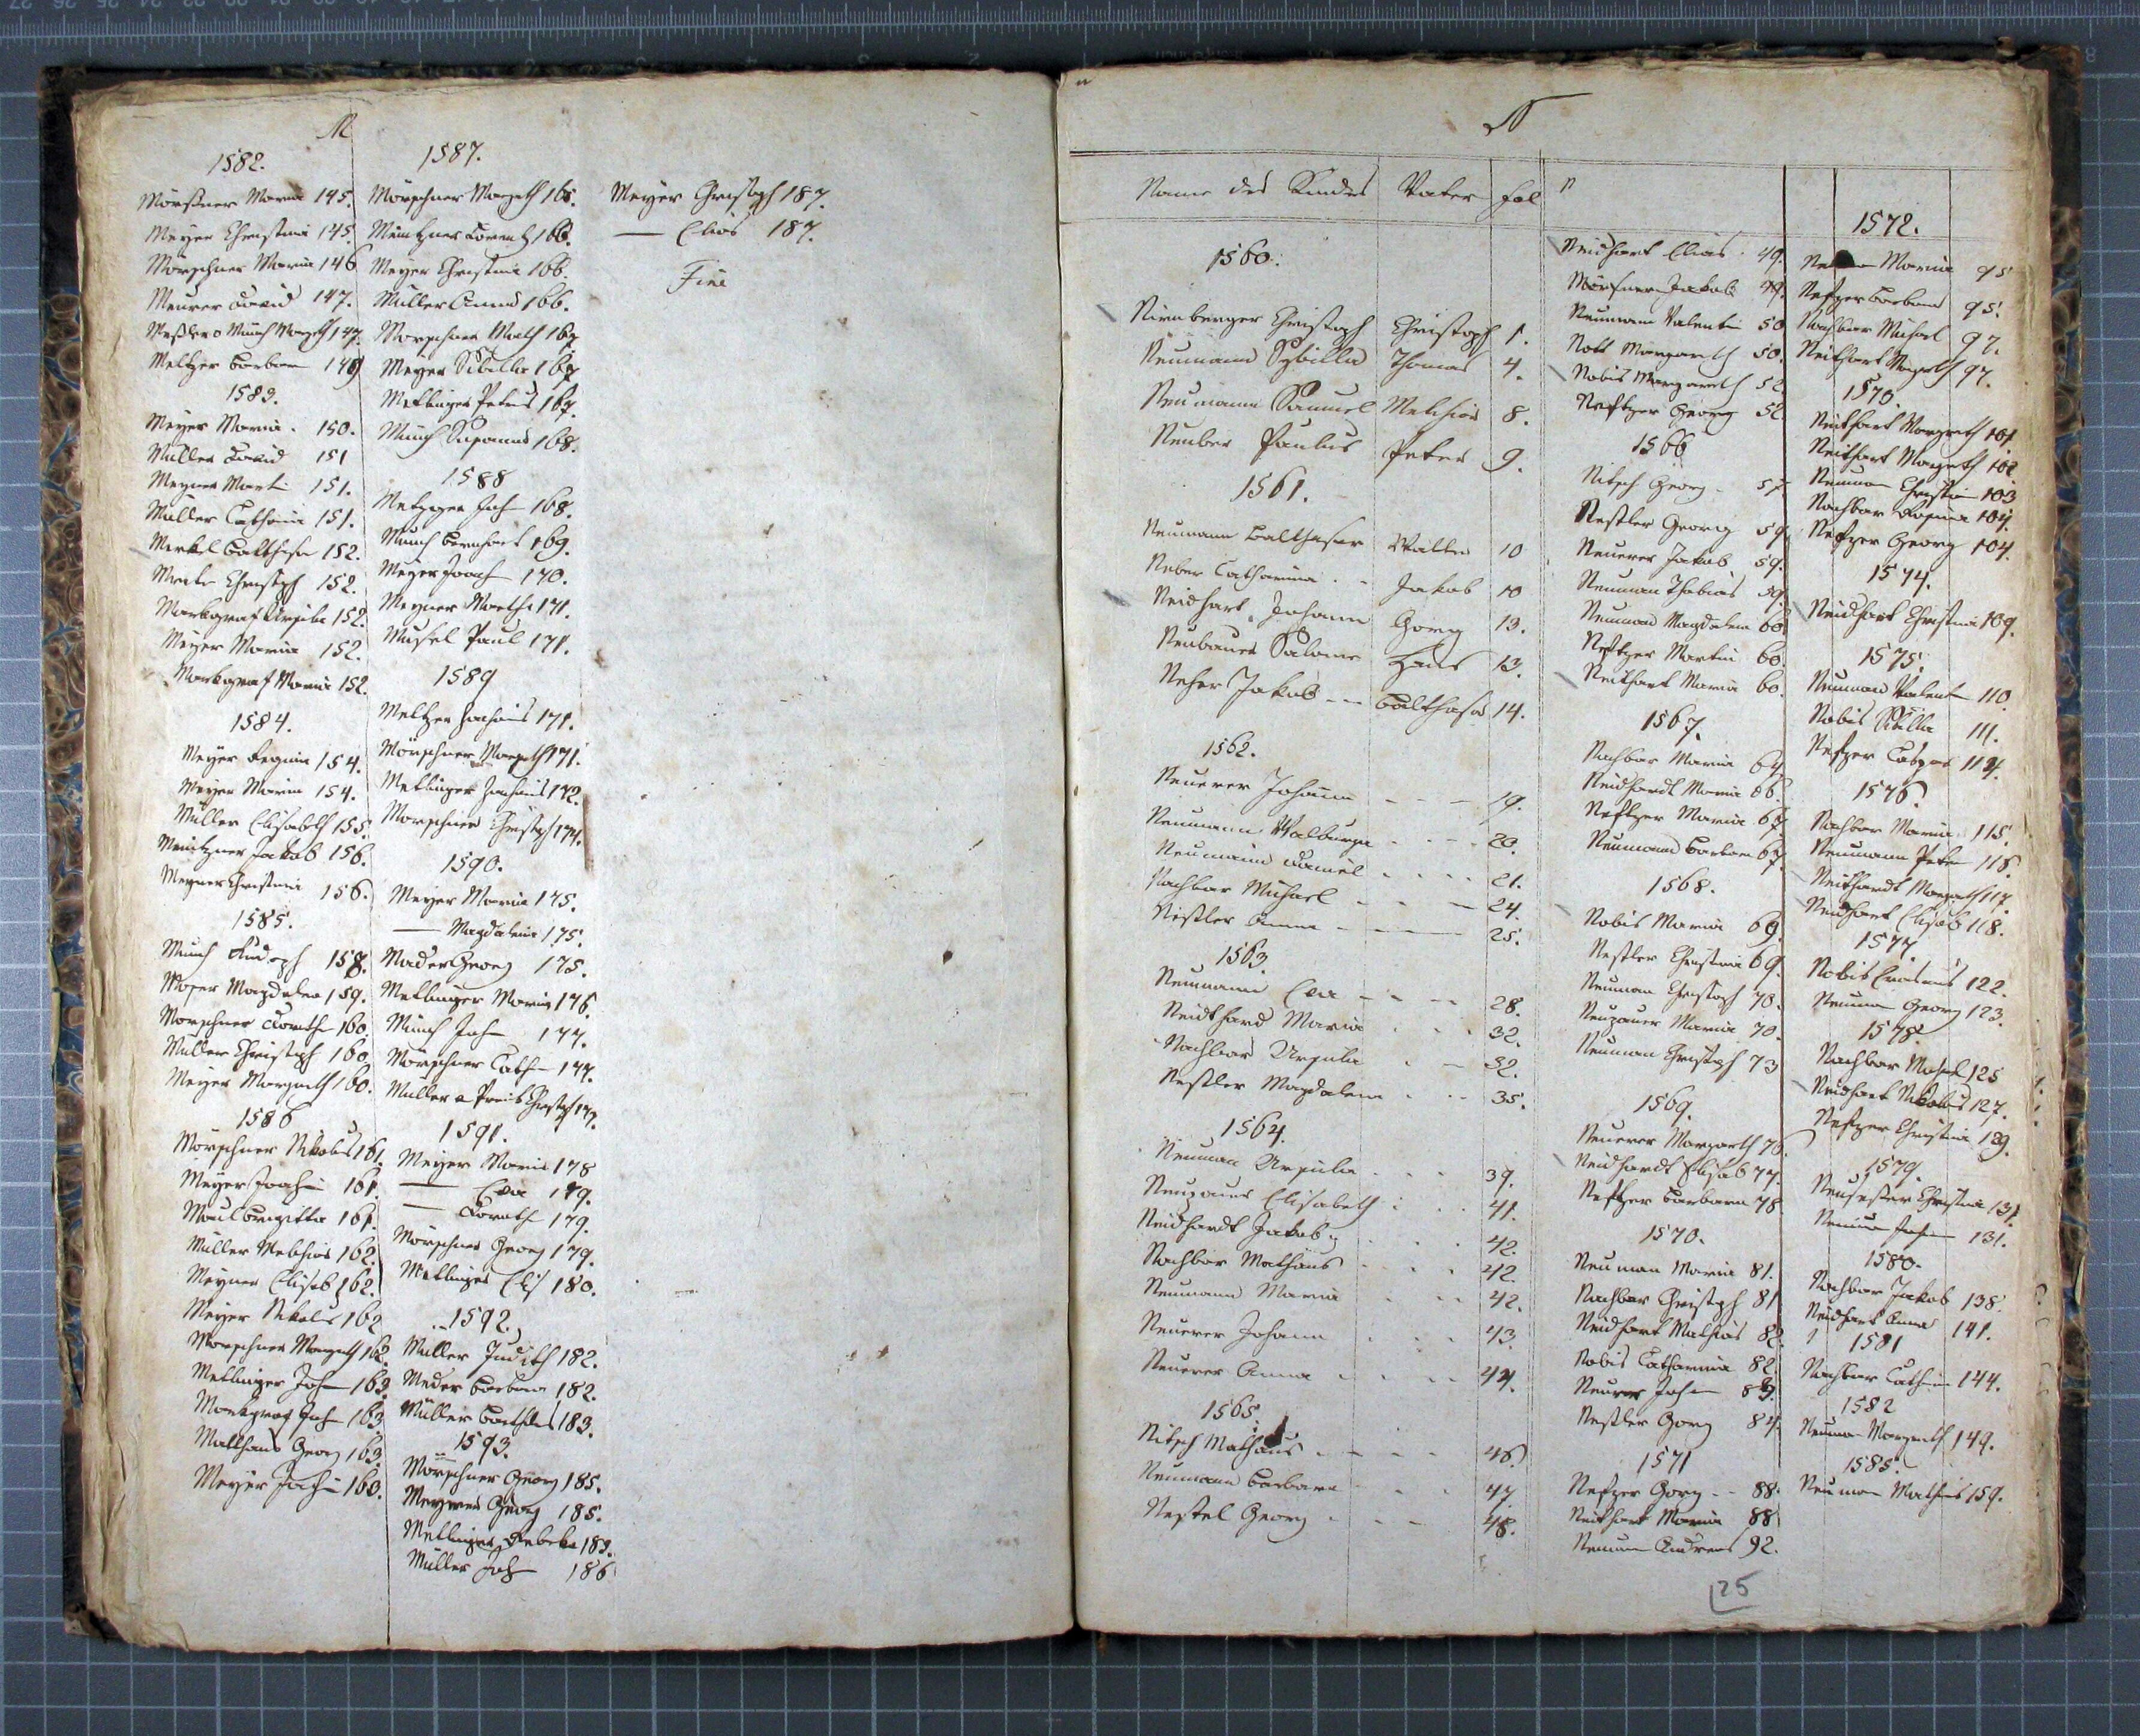 M
1582.
Maria 145.
Meyer Christina 145.
Mörschner Maria 146
Meurer David 147.
Münch Margeth 147.
Meltzer Barbara 149
1583.
Meyer Maria. 150.
Müller David 151
Meyner Martin 151.
Müller Catharina 151.
Merkel Balthasar 152.
Christoph 152.
Markgraf Ursula 152.
Meyer Maria 152.
Markgraf Maria 152.
1584.
Meyer Regina 154.
Meyer Maria 154.
Müller Elisabeth 155.
Meintzner Jakob 156.
Meyner Christina 156.
1585.
Münch Rudolph 158.
Moser Magdalena 159.
Morschner Doroth 160.
Müller Christoph 160.
Meyer Margreth 160.
1586
Mörschner Nikolaus 161.
Meyer Joachim 161.
Maul Brigitta 161.
Müller Melchior 162.
Meyner Elisab 162.
Meyer Nikolaus 162
Morschner Margreth 162.
Metlinger Joh 163.
Markgraf Joh 163.
Matthaus Georg 163.
Meyer 163.
1587.
Mörschner Margreth 165.
Meintzner Lorentz 166.
Meyer Christina 166.
Müller Anna 166.
Morschner Math 167.
Meyer Sibilla 167
Metlinger Petrus 167.
Münch Susanna 168.
1588
Metzger Joh 168.
Münch Bernhart 169.
Meyer Joach 170.
Meyner Martha 171.
Musel Paul 171.
1589
Meltzer Zacharias 171.
Mörschner Margreth 171.
Metlinger Zacharias 172.
Morschner Christoph 174.
1590.
Meyer Maria 175.
— Magdalena 175.
Mader Georg 175.
Metlinger Maria 176.
Münch Joh 177.
Mörschner Cath 177.
Müller a Preis Christoph 177.
1591.
Meyer Maria 178
— Eva 179.
— Doroth 179.
Mörschner Georg 179.
Metlinger Elis 180.
1592.
Müller Judith 182.
Meder Barbara 182.
Müller Barthles 183.
1593.
Morschner Georg 185.
Meyner Georg 185.
Metlinger Rebeka 183.
Müller Joh 186
Meyer Christoph 187.
— Elias 187.
Fine
N
Name des Kindes Vater fol
1560.
Nirnberger Christoph Christoph 1.
Neumann Sybilla Thomas 4.
Neumann Samuel Melchior 8.
Neuber Paulus Peter 9.
1561.
Neumann Balthasar 10
Neber Catharina. Jakob 10
Neidhart Johann Georg 13.
Neubauer Salome Hans 13.
Neher Jakob -- Balthasar 14.
1562.
Neuerer Johann 19.
Neumann Walburga 20.
Neumann Daniel 21.
Nachbar Michael 24.
Nestler Anna 25.
1563.
Neumann Eva 28.
Neidthard Maria 32.
Nachbar Ursula 32.
Nestler Magdalena 35.
1564.
Neuman Ursula 39.
Neuzauer Elisabeth 41.
Neidhardt Jakob 42.
Nachbar Mathäus 42.
Neumann Maria 42.
Neuerer Johann 43.
Neuerer Anna 44.
1565.
Nitsch Mathäus 46.
Neumann Barbara 47.
Nestel Georg 48.
n
Neidhart Elias. 49.
Jakob 49.
Neumann Valentin 50
Nott Margareth 50.
Nobis Margareth 52
Neftzer Georg 52
1566
Nitsch Georg 57
Nestler Georg 59
Neuerer Jakob 59.
Neuman Thobias 59.
Neumann Magdalena 60.
Neftzer Martin 60.
Neithart Maria 60.
1567.
Nachbar Maria 64
Neidhardt Maria 66.
Neftzer Maria 67.
Neumann Barbara 67.
1568.
Nobis Maria 69.
Nestler Christina 69.
Neuman Christoph 70.
Neuzauer Maria 70.
Neuman Christoph 73
1569.
Neuerer Margareth 76.
Neidhardt Elisab 77.
Neftzer Barbara 78
1570.
Neuman Maria 81.
Nachbar Christoph 81
Neidhart Mathias 82.
Nobis Catharina 82.
Neurer Joh 83.
Nestler Georg 84.
1571
Nefzer Georg -- 88.
Neithart Maria 88
Neuman Andreas 92.
1572.
Maria 95
Nefzer Barbara 95.
Nachbar Michael 97.
Neithart Margreth 97.
1573.
Neithart Margreth 101
Neithart Margreth 102
Neuman Christian 103
Nachbar Rosina 104.
Nefzer Georg 104.
1574.
Neidhart Christina 109.
1575.
Neuman Valentin 110.
Nobis Sibilla 111.
Nefzer Caspar 114.
1576.
Nachbar Maria 115.
Neumann Peter 116.
Neithardt Margreth 117.
Neidhart Elisab 118.
1577.
Nobis Erasmus 122.
Neuman Georg 123.
1578.
Nachbar Michael 125
Neidhart Nikolaus 127.
Nefzer Christina 129.
1579.
Christina 131.
Neuman Joh 131.
1580.
Nachbar Jakob 138.
Neidhart Anna 141.
1581
Nachbar Cathrin 144.
1582
Neuman Margreth 149.
1585.
Neuman Mathias 159.
25